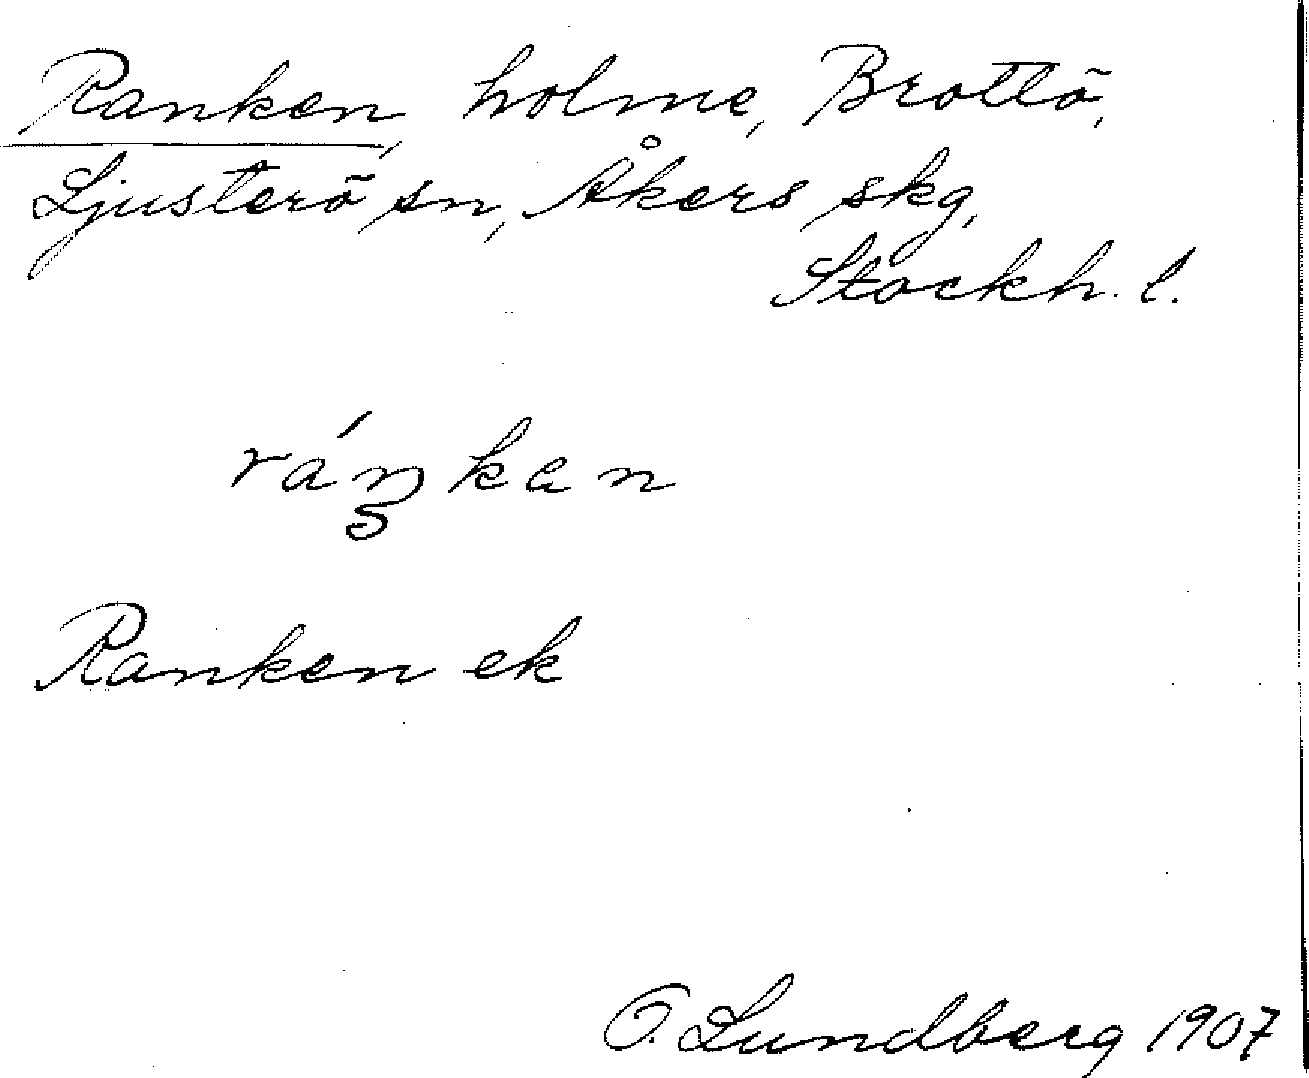 Ranken, holme, Brottö,
Ljusterö sn, Åkers skg,
Stockh. l.
ráŋkan
Ranken ek
O. Lundberg 1907